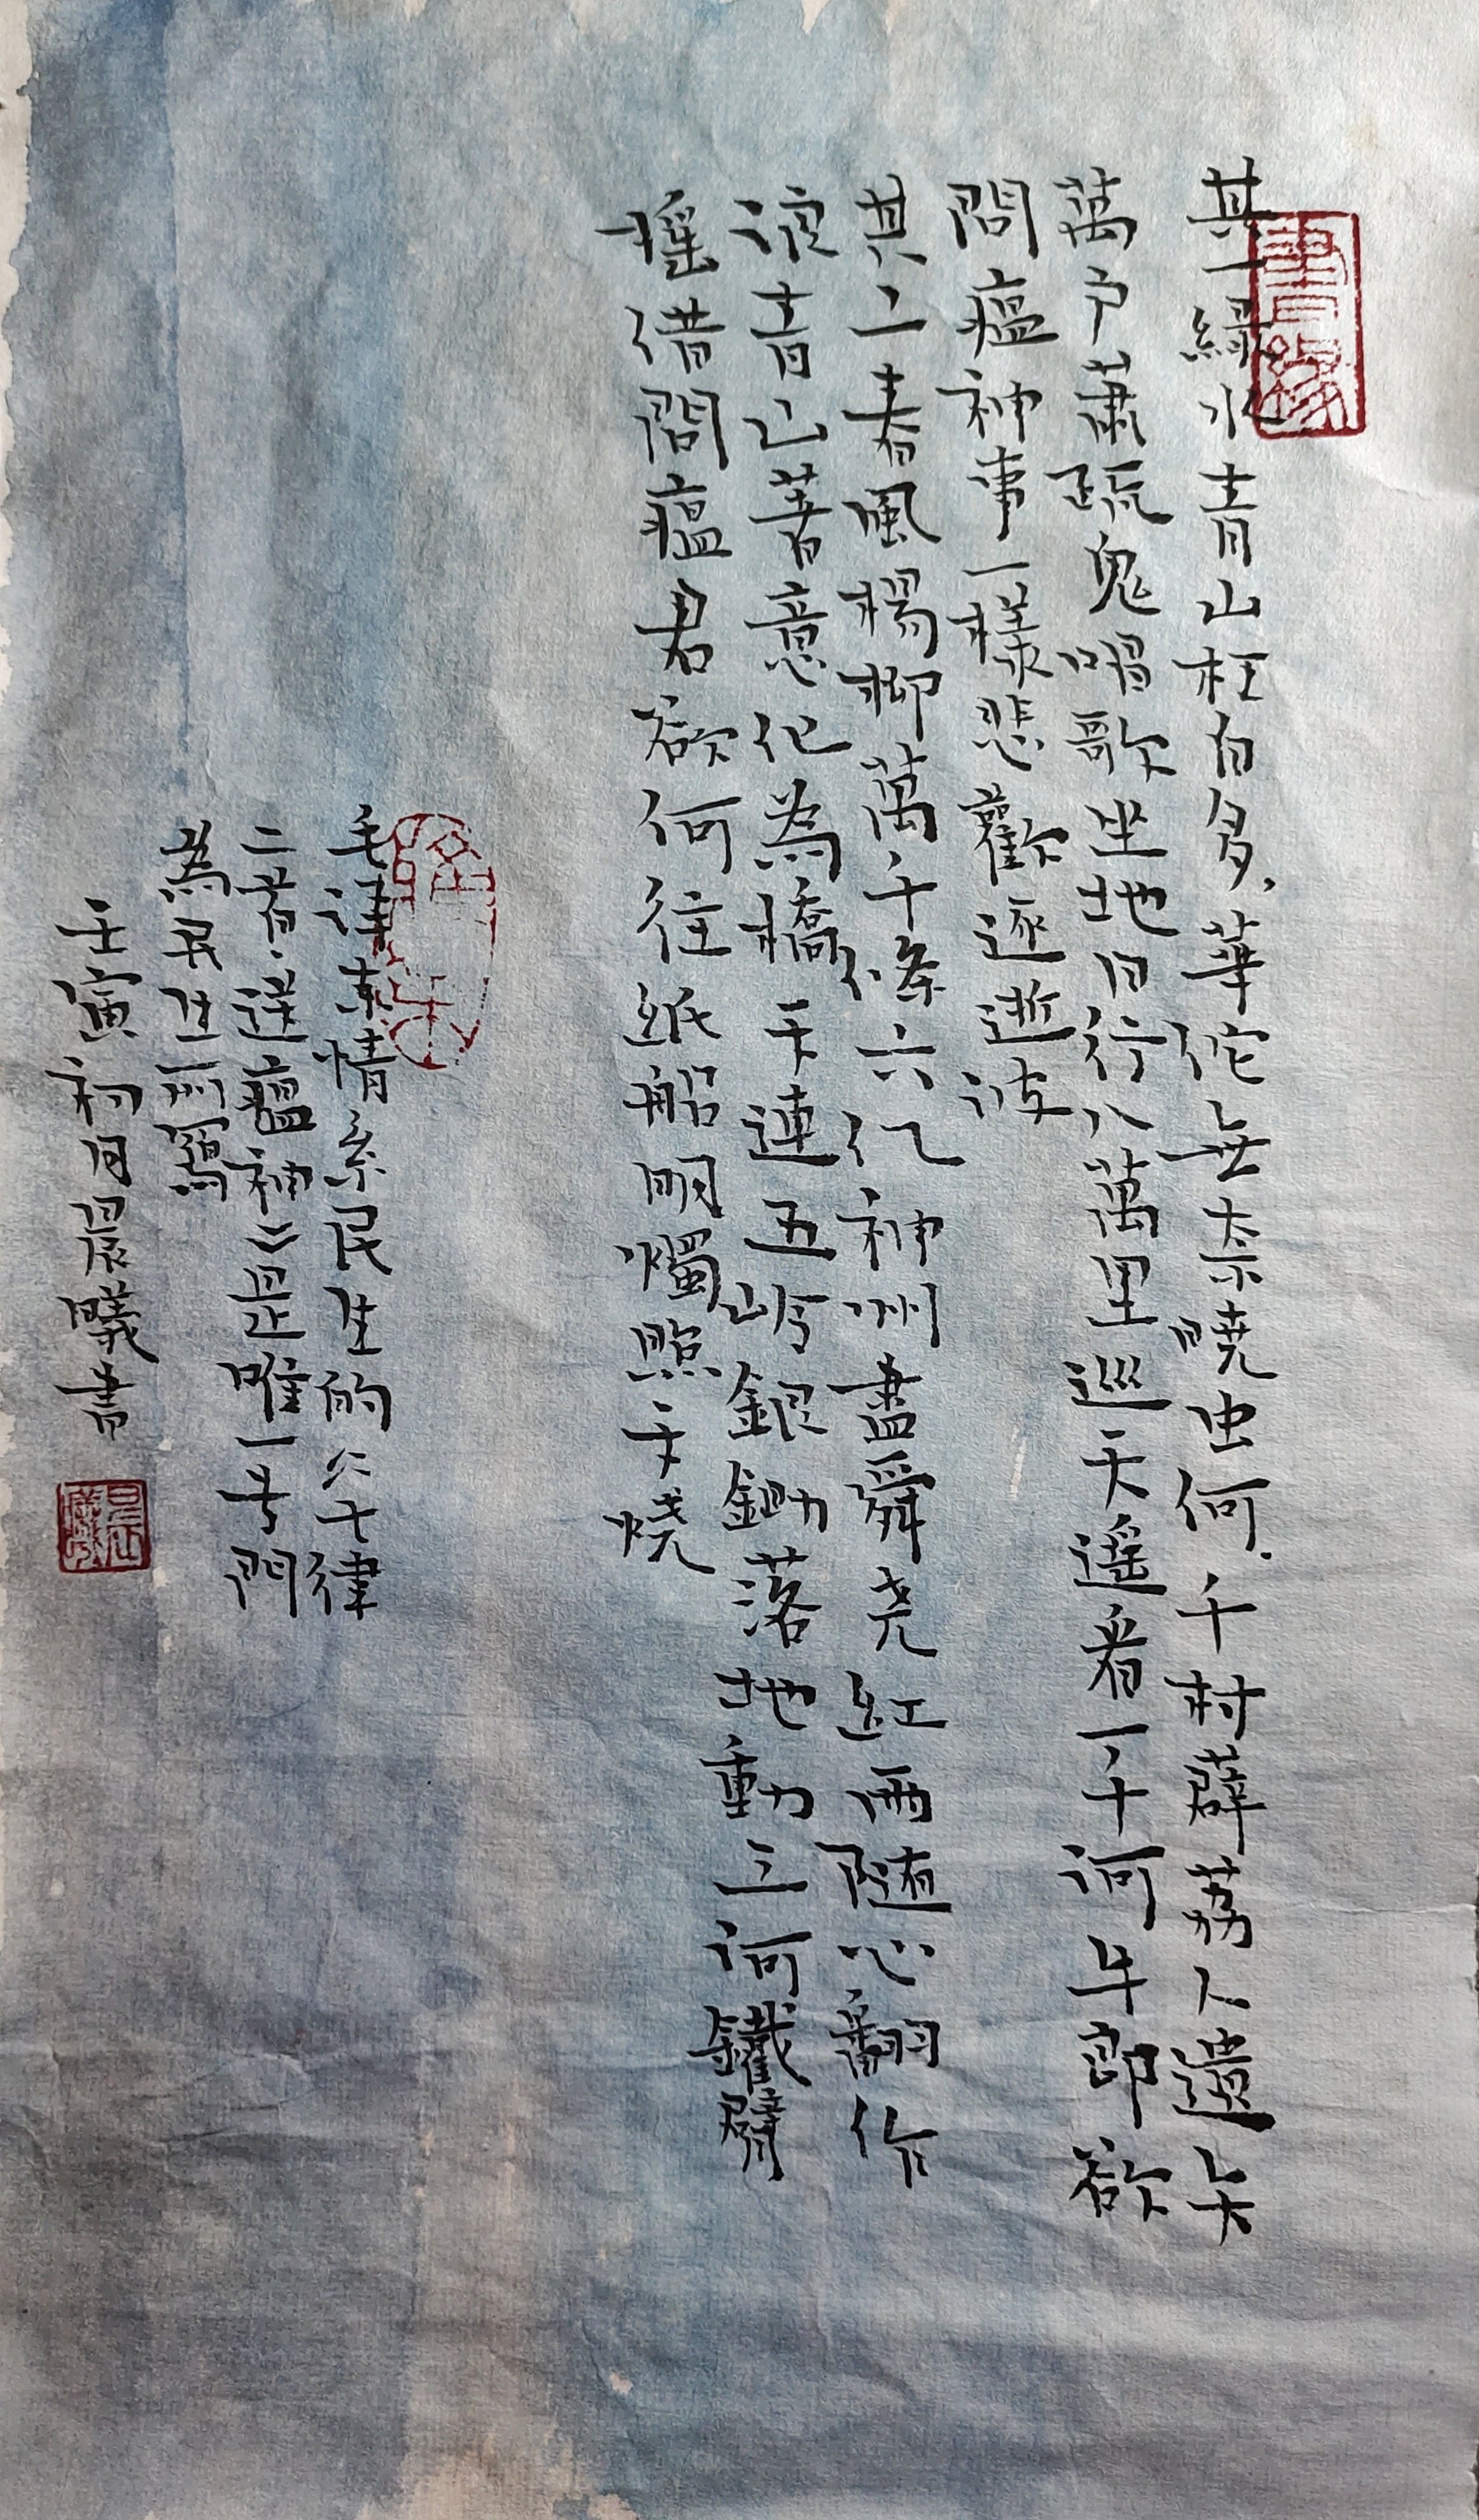 其一綠水青山枉自多，華佗無奈曉虫何．千村薜荔人遺矢
萬戶蕭疏鬼唱歌坐地日行八萬里巡天遥看一千河牛郎欲
問瘟神事一樣悲歡逐逝波
其二春風楊柳萬千條六亿神州盡舜尭紅雨隨心翻作
浪青山著意化為橋天連五岭銀鋤落地動三河鐵臂
摇借問瘟君欲何往纸船明燭照天燒
毛澤東情系民生的六十律
二首．送瘟神》是唯一专門
為民生而寫
壬寅初月晨曦書